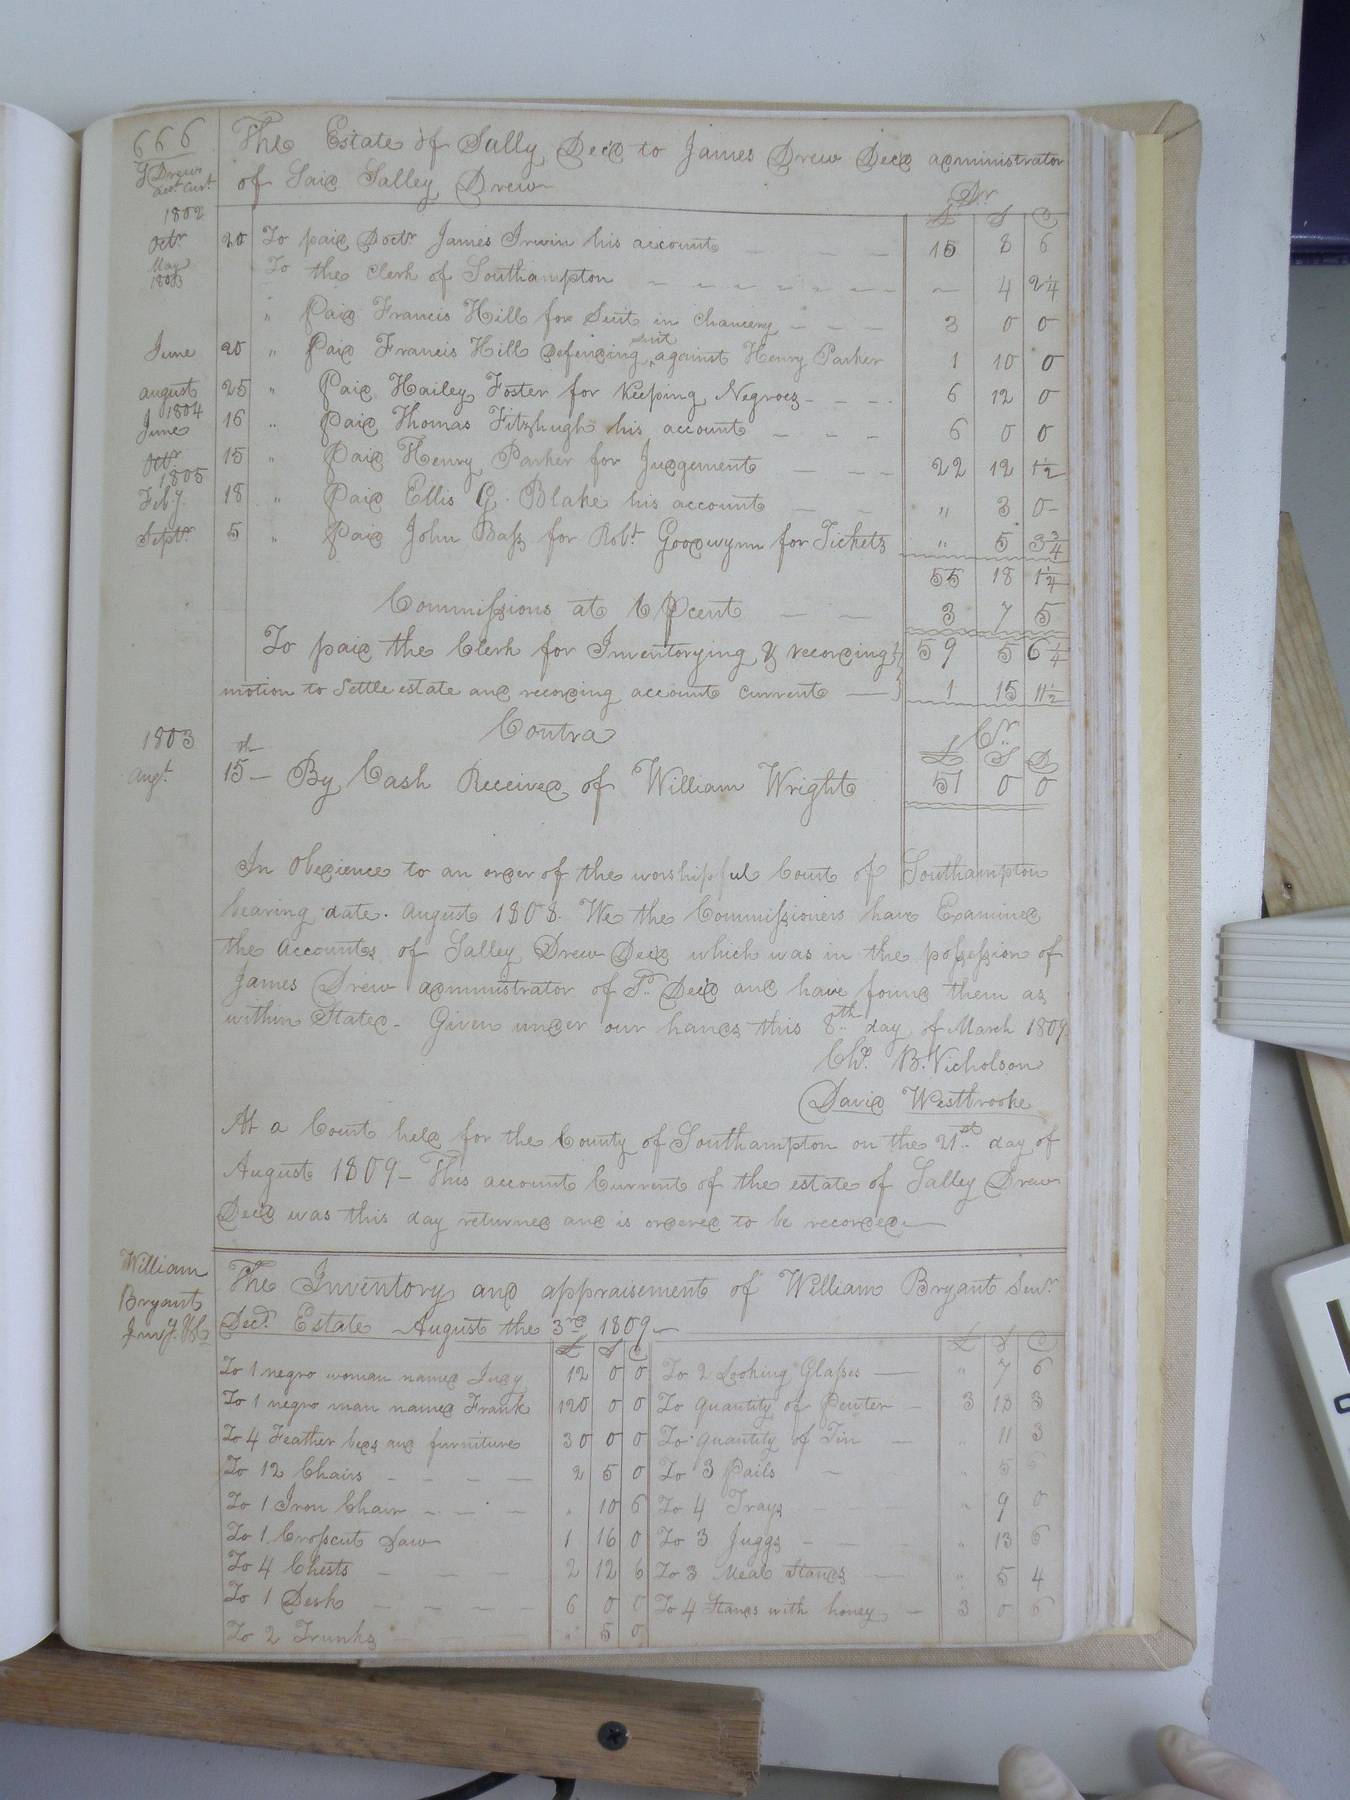 666
The Estate of Sally Decd to James Drew Decd administrator
Drew
acct Curt
of Said Salley Drew
Dr
£ S D
1802
Octr 20 To paid Doctr James Irwin his account 15 8 6
May 1803 To the Clerk of Southampton 4 2¼
" Paid Francis Hill for Suit in Chancery 3 0 0
June 20 " Paid Francis Hill defending suit against Henry Parker 1 10 0
august 25 " Paid Hailey Foster for Keeping Negroes 6 12 0
1804
June 16 " Paid Thomas Fitzhugh his account 6 0 0
Octr 15 " Paid Henry Parker for Judgement 22 12 1½
1805
Feby 18 " Paid Ellis G. Blake his account " 3 0
Septr 5 " Paid John Bass for Robt Goodwynn for Tickets " 5 3¾
55 18 1¼
Commissions at 6 Pcent 3 7 5
59 5 6¼
To paid the Clerk for Inventorying & recording
motion to Settle estate and recording account current 1 15 11½
Contra Cr
£ S D
1803
Augt 15th By Cash Received of William Wright 51 0 0
In Obedience to an order of the worshipful Court of Southampton
bearing date. August 1808. We the Commissioners have Examined
the Accounts of Salley Drew Decd which was in the possession of
James Drew administrator of Sd Decd and have found them as
within Stated. Given under our hands this 8th day of March 1809
Chs. B. Nicholson
David Westbrooke
At a Court held for the County of Southampton on the 21st day of
August 1809 - This account Current of the estate of Salley Drew
Decd was this day returned and is ordered to be recorded
William
Bryant
The Inventory and appraisement of William Bryant Senr
Decd. Estate August the 3rd 1809
£ S D £ S D
To 1 negro woman named Judy 12 0 0 To 2 Looking Glasses " 7 6
To 1 negro man named Frank 120 0 0 To quantity of Pewter 3 18 3
To 4 Feather beds and furniture 30 0 0 To quantity of Tin " 11 3
To 12 Chairs 2 5 0 To 3 Pails " 5
To 1 Iron Chair " 10 6 To 4 Trays " 9 0
To 1 Crosscut Saw 1 16 0 To 3 Juggs 13 6
To 4 Chests 2 12 6 To 3 Meal Stands " 5 4
To 1 Desk 6 0 0 To 4 Stands with honey 3 0 6
To 2 Trunks " 5 0